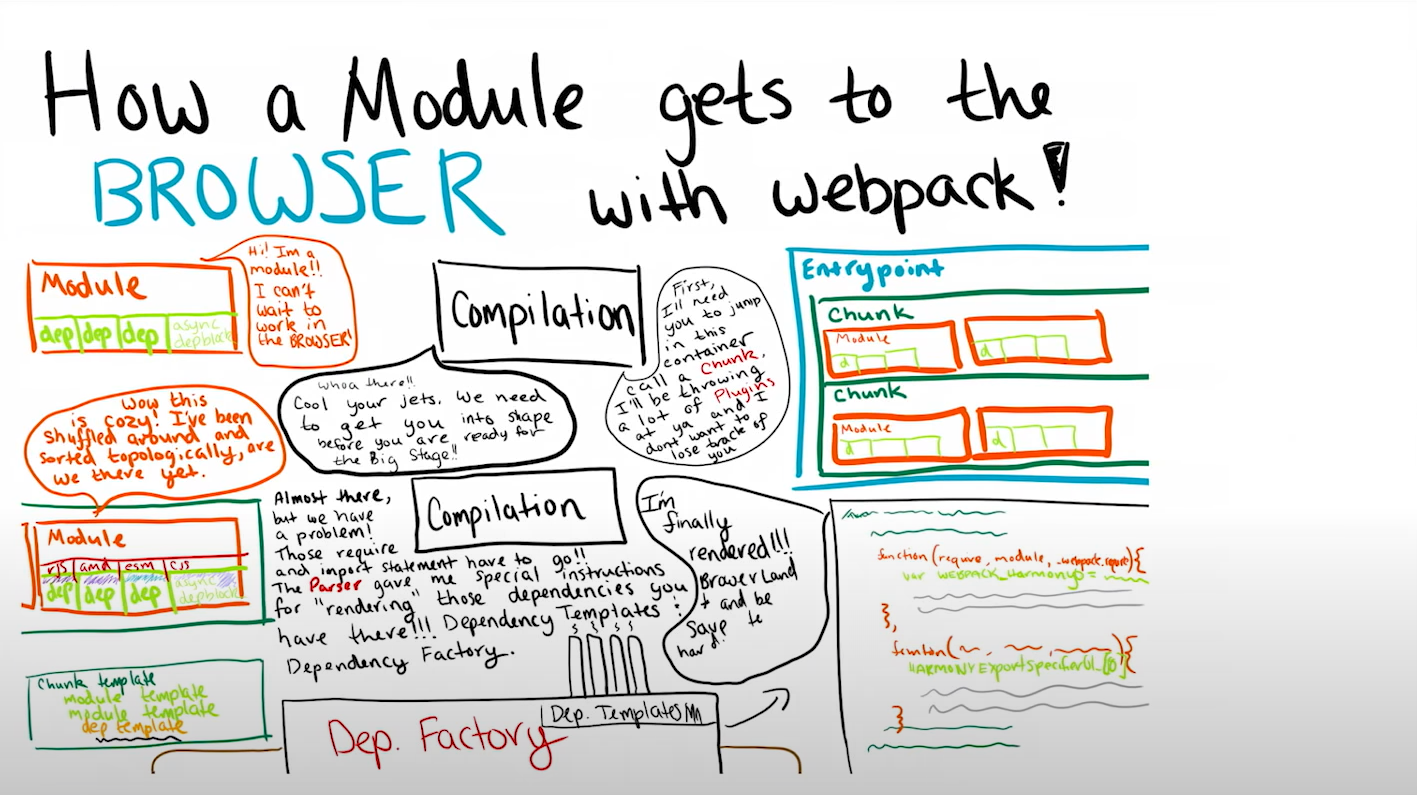 How a Module gets to the
BROWSER with webpack!
Module
dep dep dep async
depblock
Hi! Im a
module!!
I can't
wait to
work in
the BROWSER!
Compilation
whoa there!!
Cool your jets. We need
to get you into shape
before you are ready for
the Big Stage!!
First,
I'll need
you to jump
in this
container
call a Chunk.
I'll be throwing
a lot of Plugins
at ya and I
dont want to
lose track of
you
Entrypoint
Chunk
Module
d
d
Chunk
Module
d
d
Wow this
is cozy! I've been
shuffled around and
sorted topologically, are
we there yet.
Module
rjs amd esm cjs
dep dep dep async
depblock
Almost there,
but we have
a problem!
Those require
and import statement have to go!!
The Parser gave me special instructions
for "rendering" those dependencies you
have there!!! Dependency Templates :
Dependency Factory.
Compilation
I'm
finally
rendered!!!
BrowerLand
and be
Save
hard
function(require, module, _webpack_
var WEBPACK_Harmony =
},
function(
HARMONY Export Specifer
}
Chunk template
module template
module template
dep template
Dep. Templates
Dep. Factory